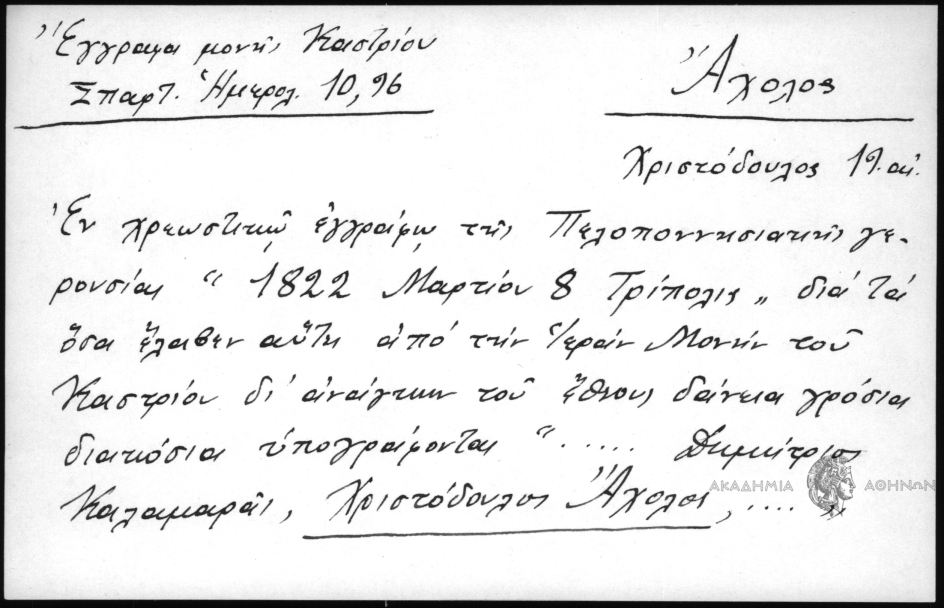 Ἔγγραφα μονῆς Καστρίου
Σπαρτ. Ἡμερολ. 10, 96
Ἄχολος
Χριστόδουλος 19. αἰ.
Ἐν χρεωστικῷ ἐγγράφῳ τῆς Πελοποννησιακῆς γε-
ρουσίας " 1822 Μαρτίου 8 Τρίπολις „ διά τά
ὅσα ἔλαβεν αὕτη ἀπό τήν Ἱεράν Μονήν τοῦ
Καστρίου δι' ἀνάγκην τοῦ ἔθνους δάνεια γρόσια
διακόσια ὑπογράφονται " ..... Δημήτριος
Καλαμαρᾶς, Χριστόδουλος Ἄχολος, .... „
ΑΚΑΔΗΜΙΑ ΑΘΗΝΩΝ